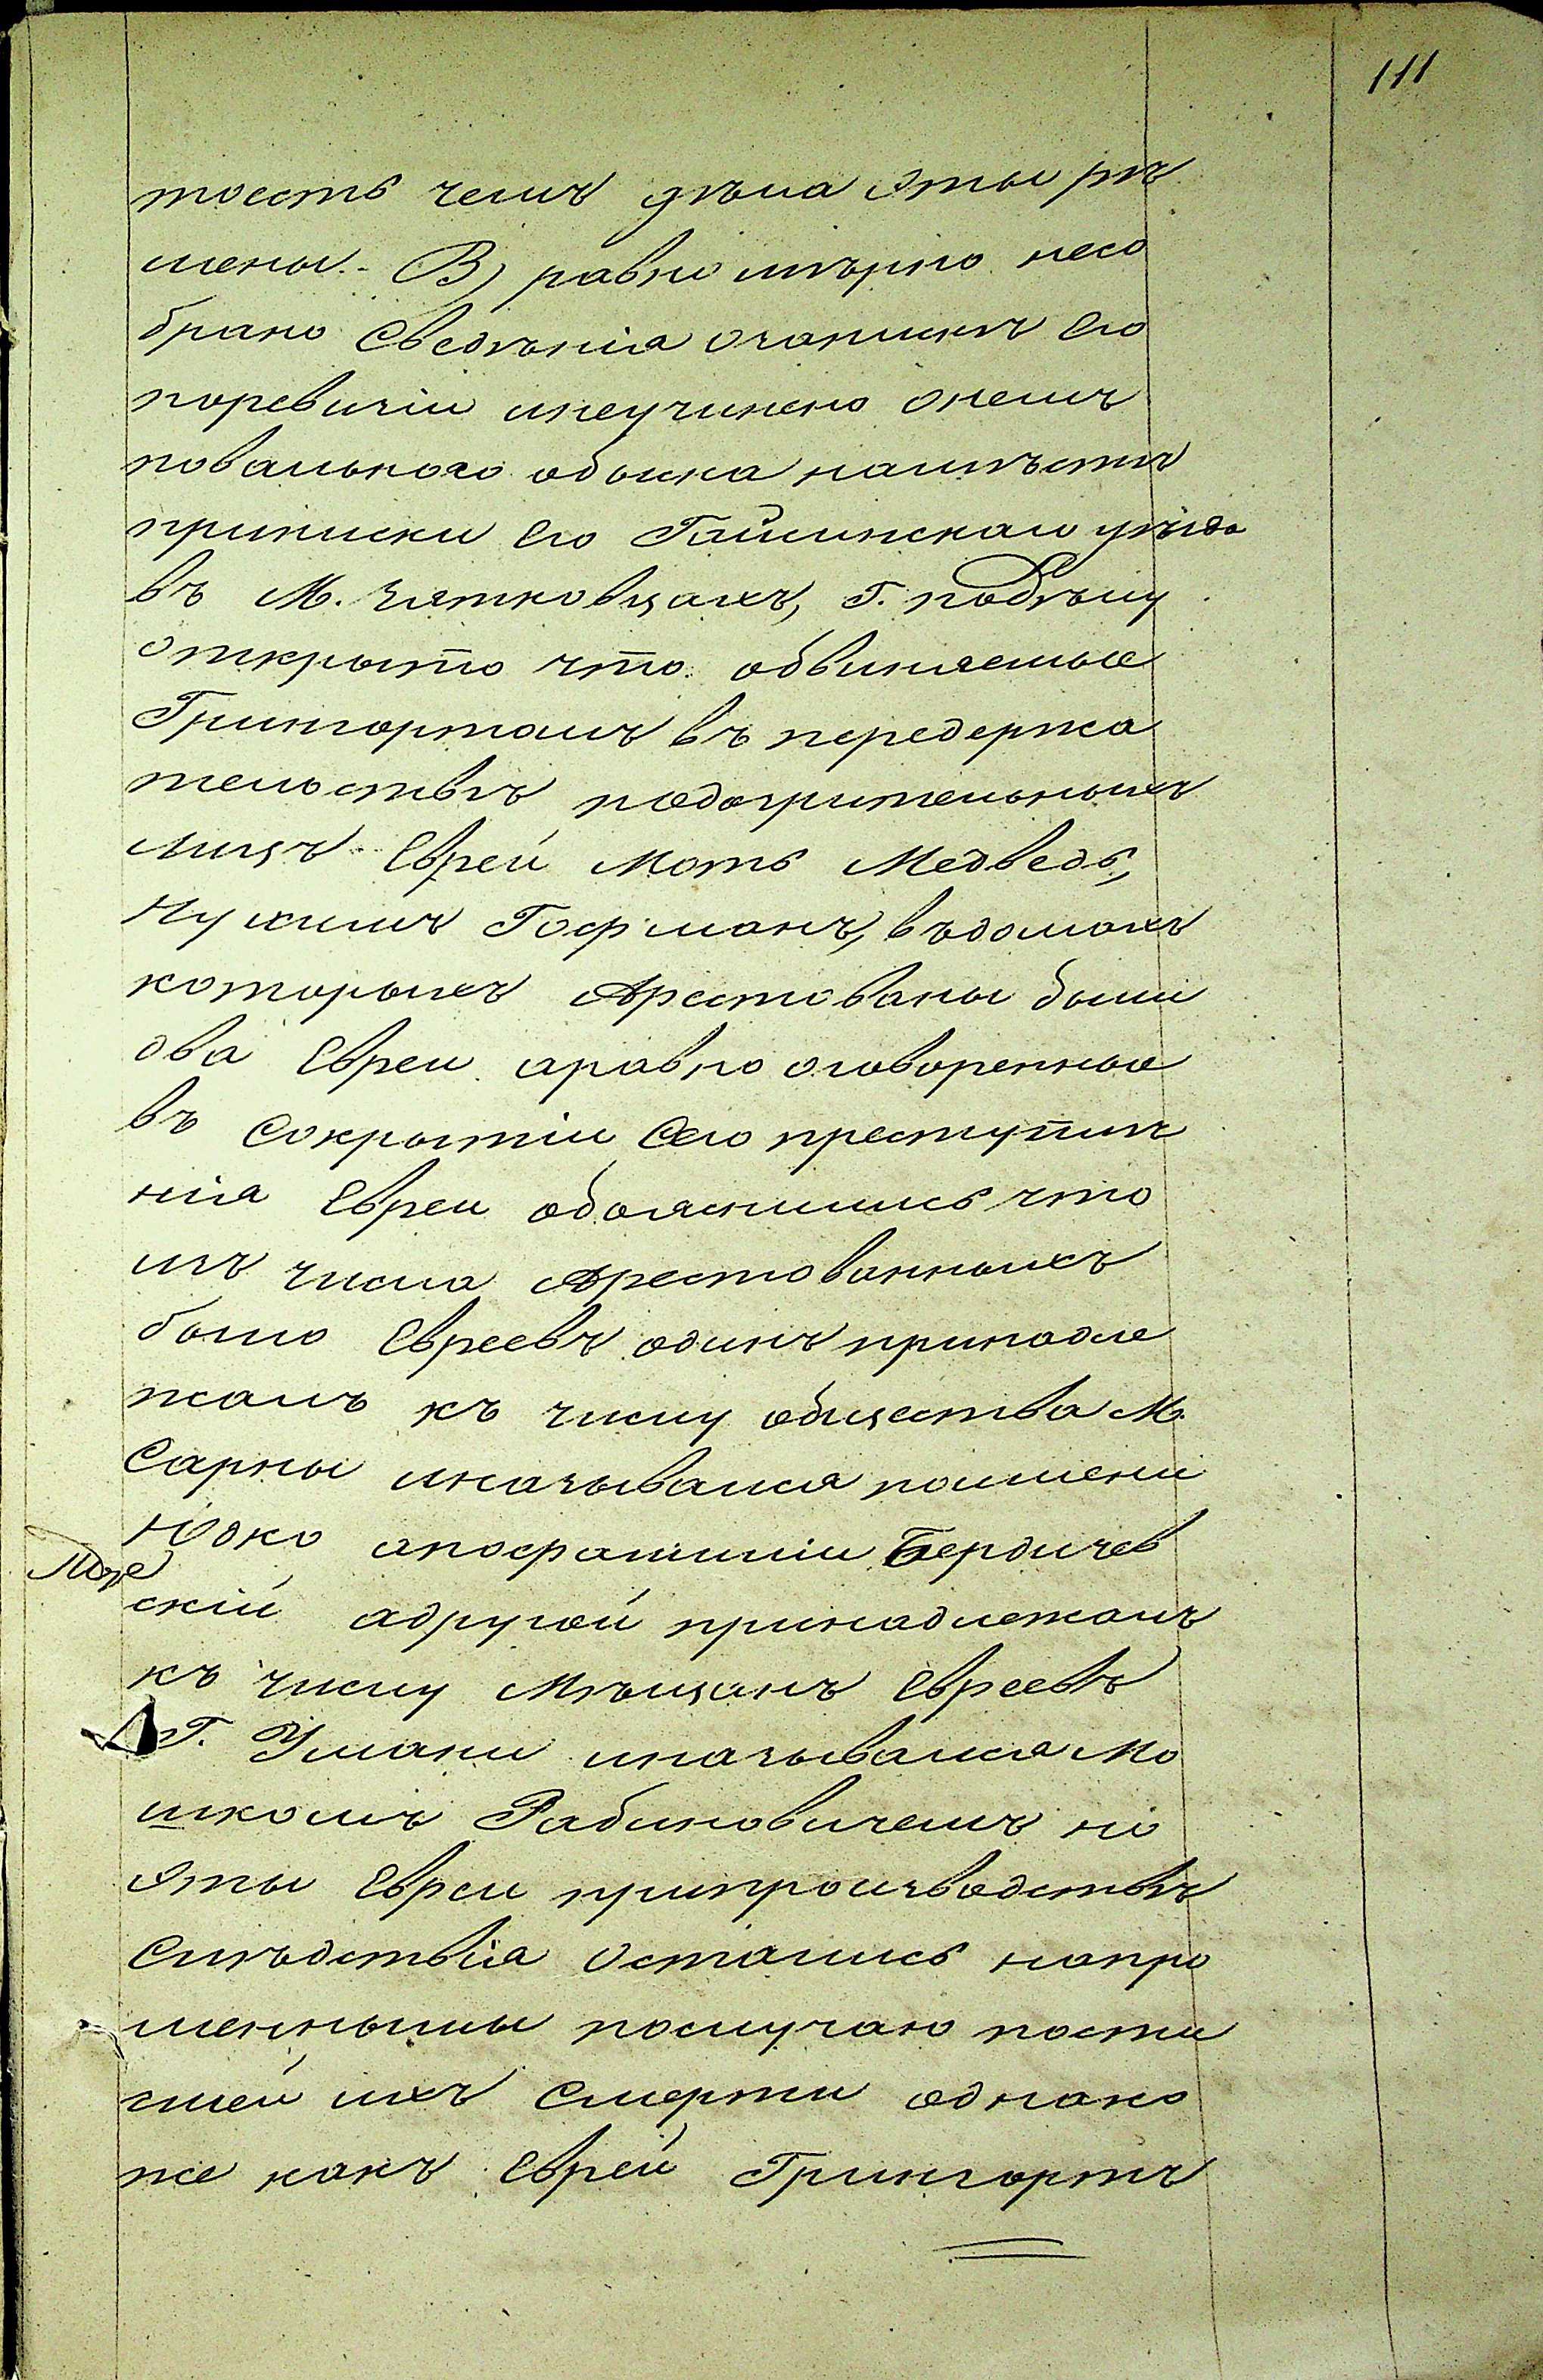 111
тоесть чемъ дѣла эты рѣ
шены. В) равно мѣрно несо
брано Сведѣнія очапискѣ Его
поревизіи инеучинено онемъ
повальнаго обыска намѣстѣ
приписки Его Гайсинскаго уѣзда
въ М. Чятковцахъ, Г.
открыто что обвиняемые
Грингортомъ въ передержа
тельствѣ подозрительныхъ
лицъ Еврей Мотъ Медведь,
Нухимъ Гофманъ, въдомахъ
которыхъ Арестованы были
два Евреи аравно оговоренные
въ Сокрытіи Сего преступле
нія Евреи объяснились что
изъ числа Арестованныхъ
было Евреевъ одинъ принадле
жалъ къ числу общества М.
Сарны иназывался поимени
Юдко апофамиліи Бердичев
скій адругой принадлежалъ
къ числу Мѣщанъ Евреевъ
Г. Умани иназывался Мо
шкомъ Рабиновичемъ но
эты Евреи припроизводствѣ
Слѣдствія Остались непро
шенными послучаю пости
гшей ихъ Смерти однако
же какъ Еврей Грингортъ